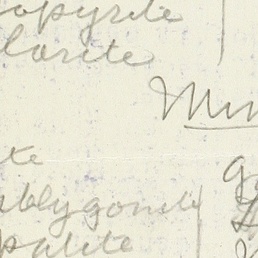 opyrite
lorite
Min
te
blygonite
patite